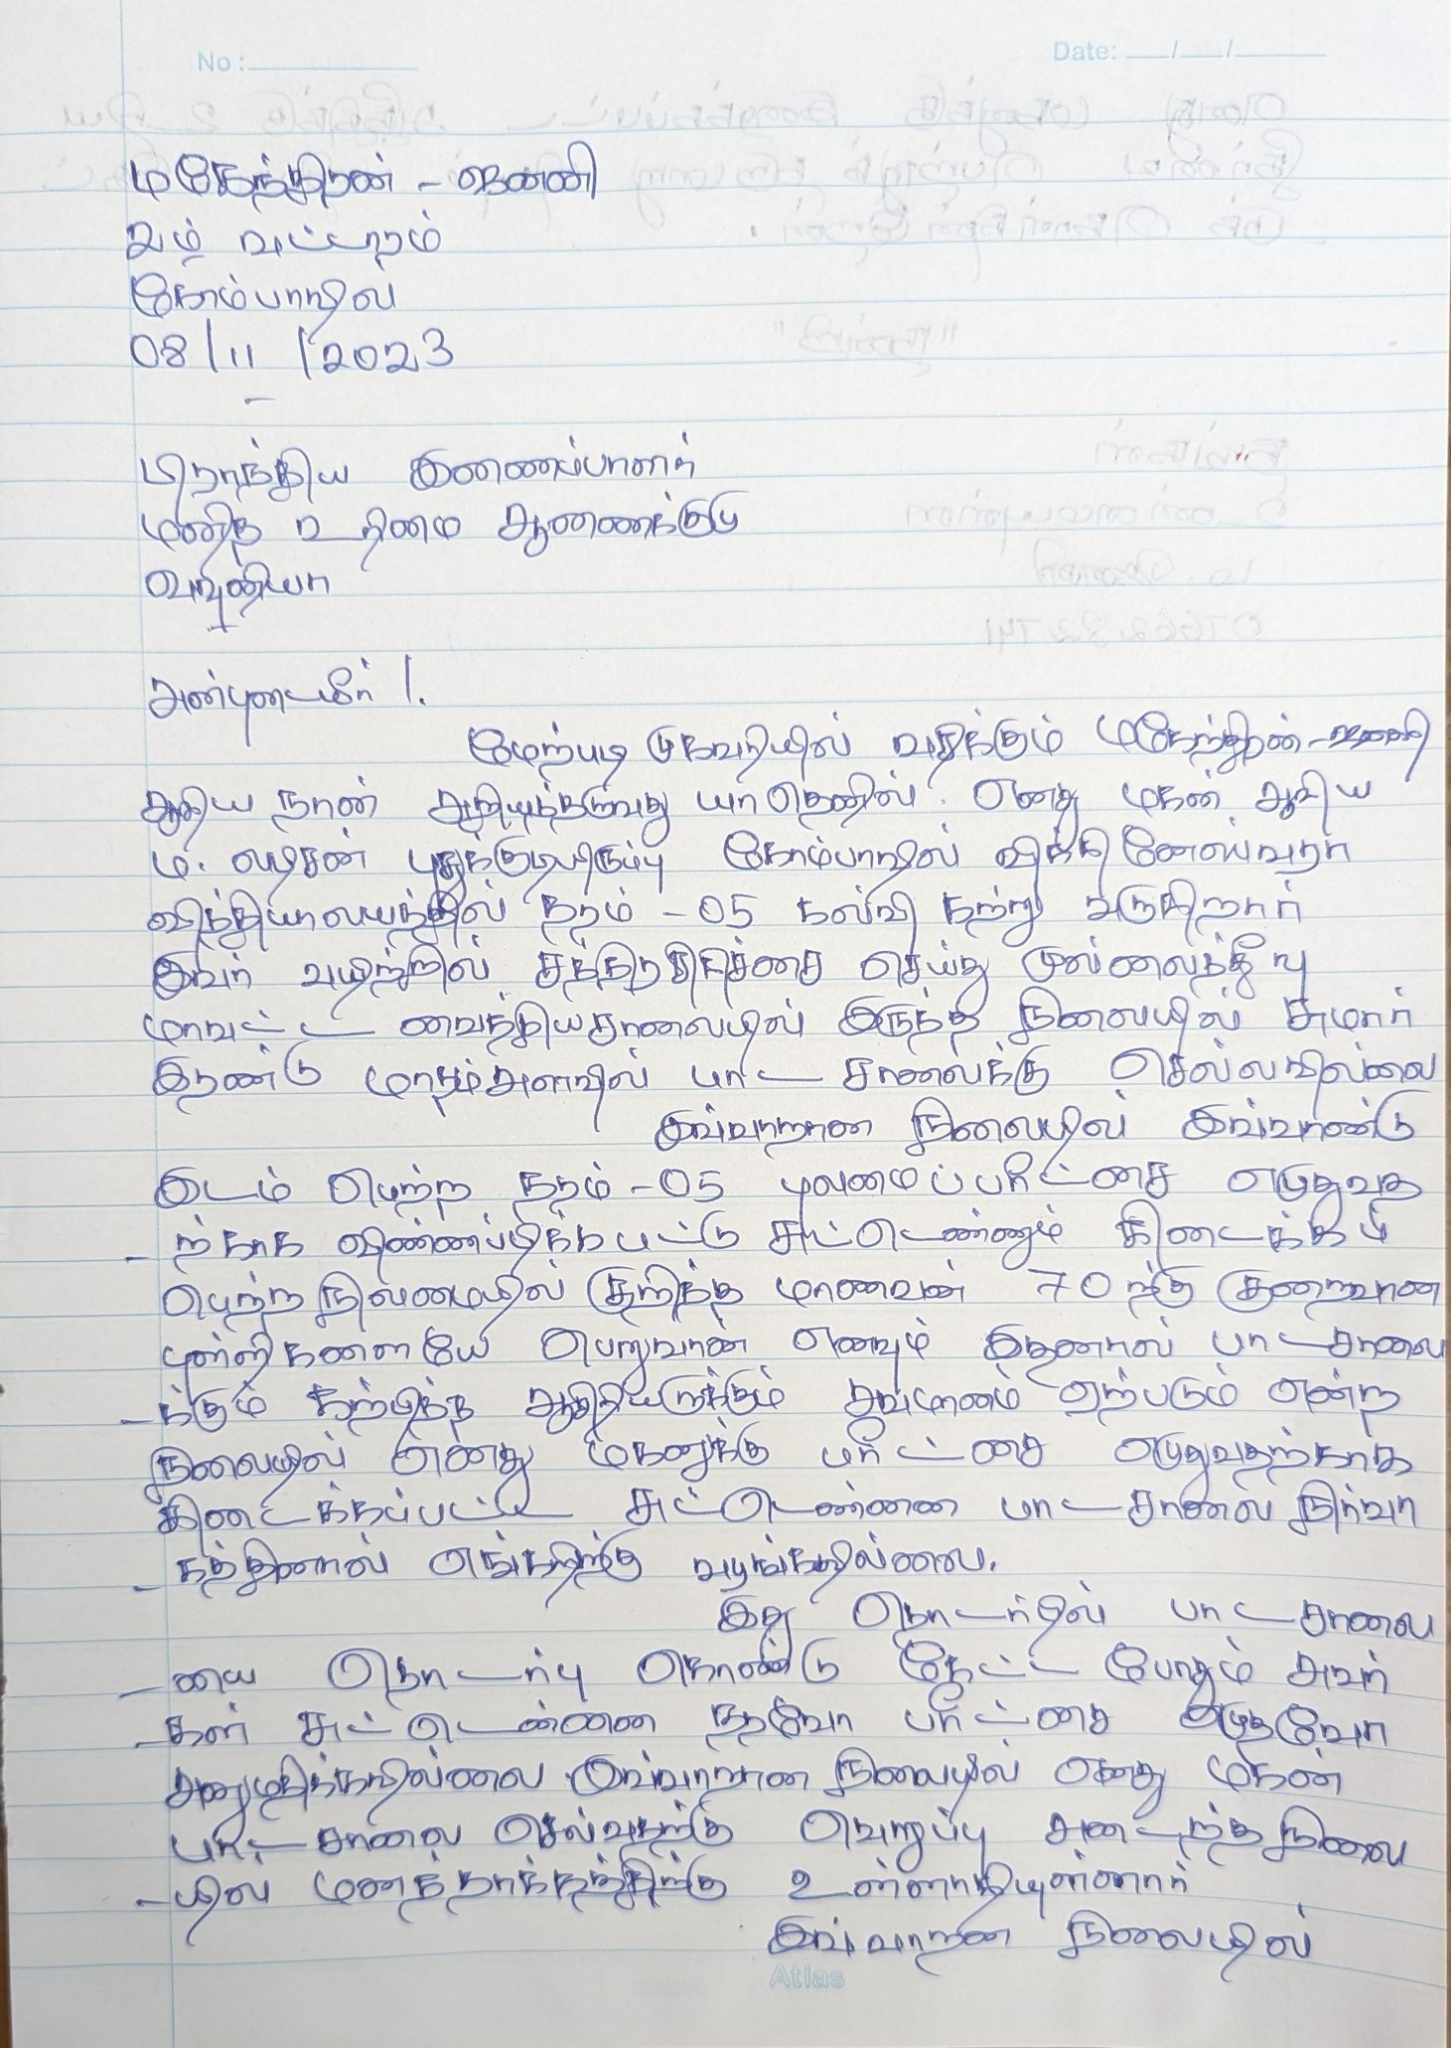 No :
Date: __/__/____
மகேந்திரன் - ஜனனி
2ம் வட்டாரம்
கோம்பாவில்
08/11/2023
பிராந்திய இணைப்பாளர்
மனித உரிமை ஆணைக்குழு
வவுனியா
அன்புடையீர் !.
மேற்படி முகவரியில் வசிக்கும் மகேந்திரன்-ஜனனி
ஆகிய நான் அறியத்தருவது யாதெனில். எனது மகன் ஆகிய
ம. புதுக்குடியிருப்பு கோம்பாவில் விக்கினேஸ்வரா
வித்தியாலயத்தில் தரம் -05 கல்வி கற்று வருகிறார்
இவர் வயிற்றில் சத்திரசிகிச்சை செய்து முல்லைத்தீவு
மாவட்ட வைத்தியசாலையில் இருந்த நிலையில் சுமார்
இரண்டு மாதம்அளவில் பாடசாலைக்கு செல்லவில்லை
இவ்வாறான நிலையில் இவ்வாண்டு
இடம் பெற்ற தரம் -05 புலமைப்பரிட்சை எழுதுவத
-ற்காக விண்ணப்பிக்கபட்டு சுட்டெண்ணும் கிடைக்கப்
பெற்ற நிலமையில் குறித்த மாணவன் 70ற்கு குறைவான
புள்ளிகளையே பெறுவான் எனவும் இதனால் பாடசாலை
-க்கும் கற்பித்த ஆசிரியருக்கும் அவமானம் ஏற்படும் என்ற
நிலையில் எனது மகனுக்கு பரிட்சை எழுதுவதற்காக
கிடைக்கப்பட்ட சுட்டெண்ணை பாடசாலை நிர்வா
-கத்தினால் எங்களிற்கு வழங்கவில்லை.
இது தொடர்பில் பாடசாலை
-யை தொடர்பு கொண்டு கேட்ட போதும் அவர்
-கள் சுட்டெண்ணை தரவோ பரிட்சை எழுதவோ
அனுமதிக்கவில்லை இவ்வாறான நிலையில் எனது மகன்
பாடசாலை செல்வதற்கு வெறுப்பு அடைந்த நிலை
-யில் மனத்தாக்கத்திற்கு உள்ளாகியுள்ளார்
இவ்வாறன நிலையில்
Atlas